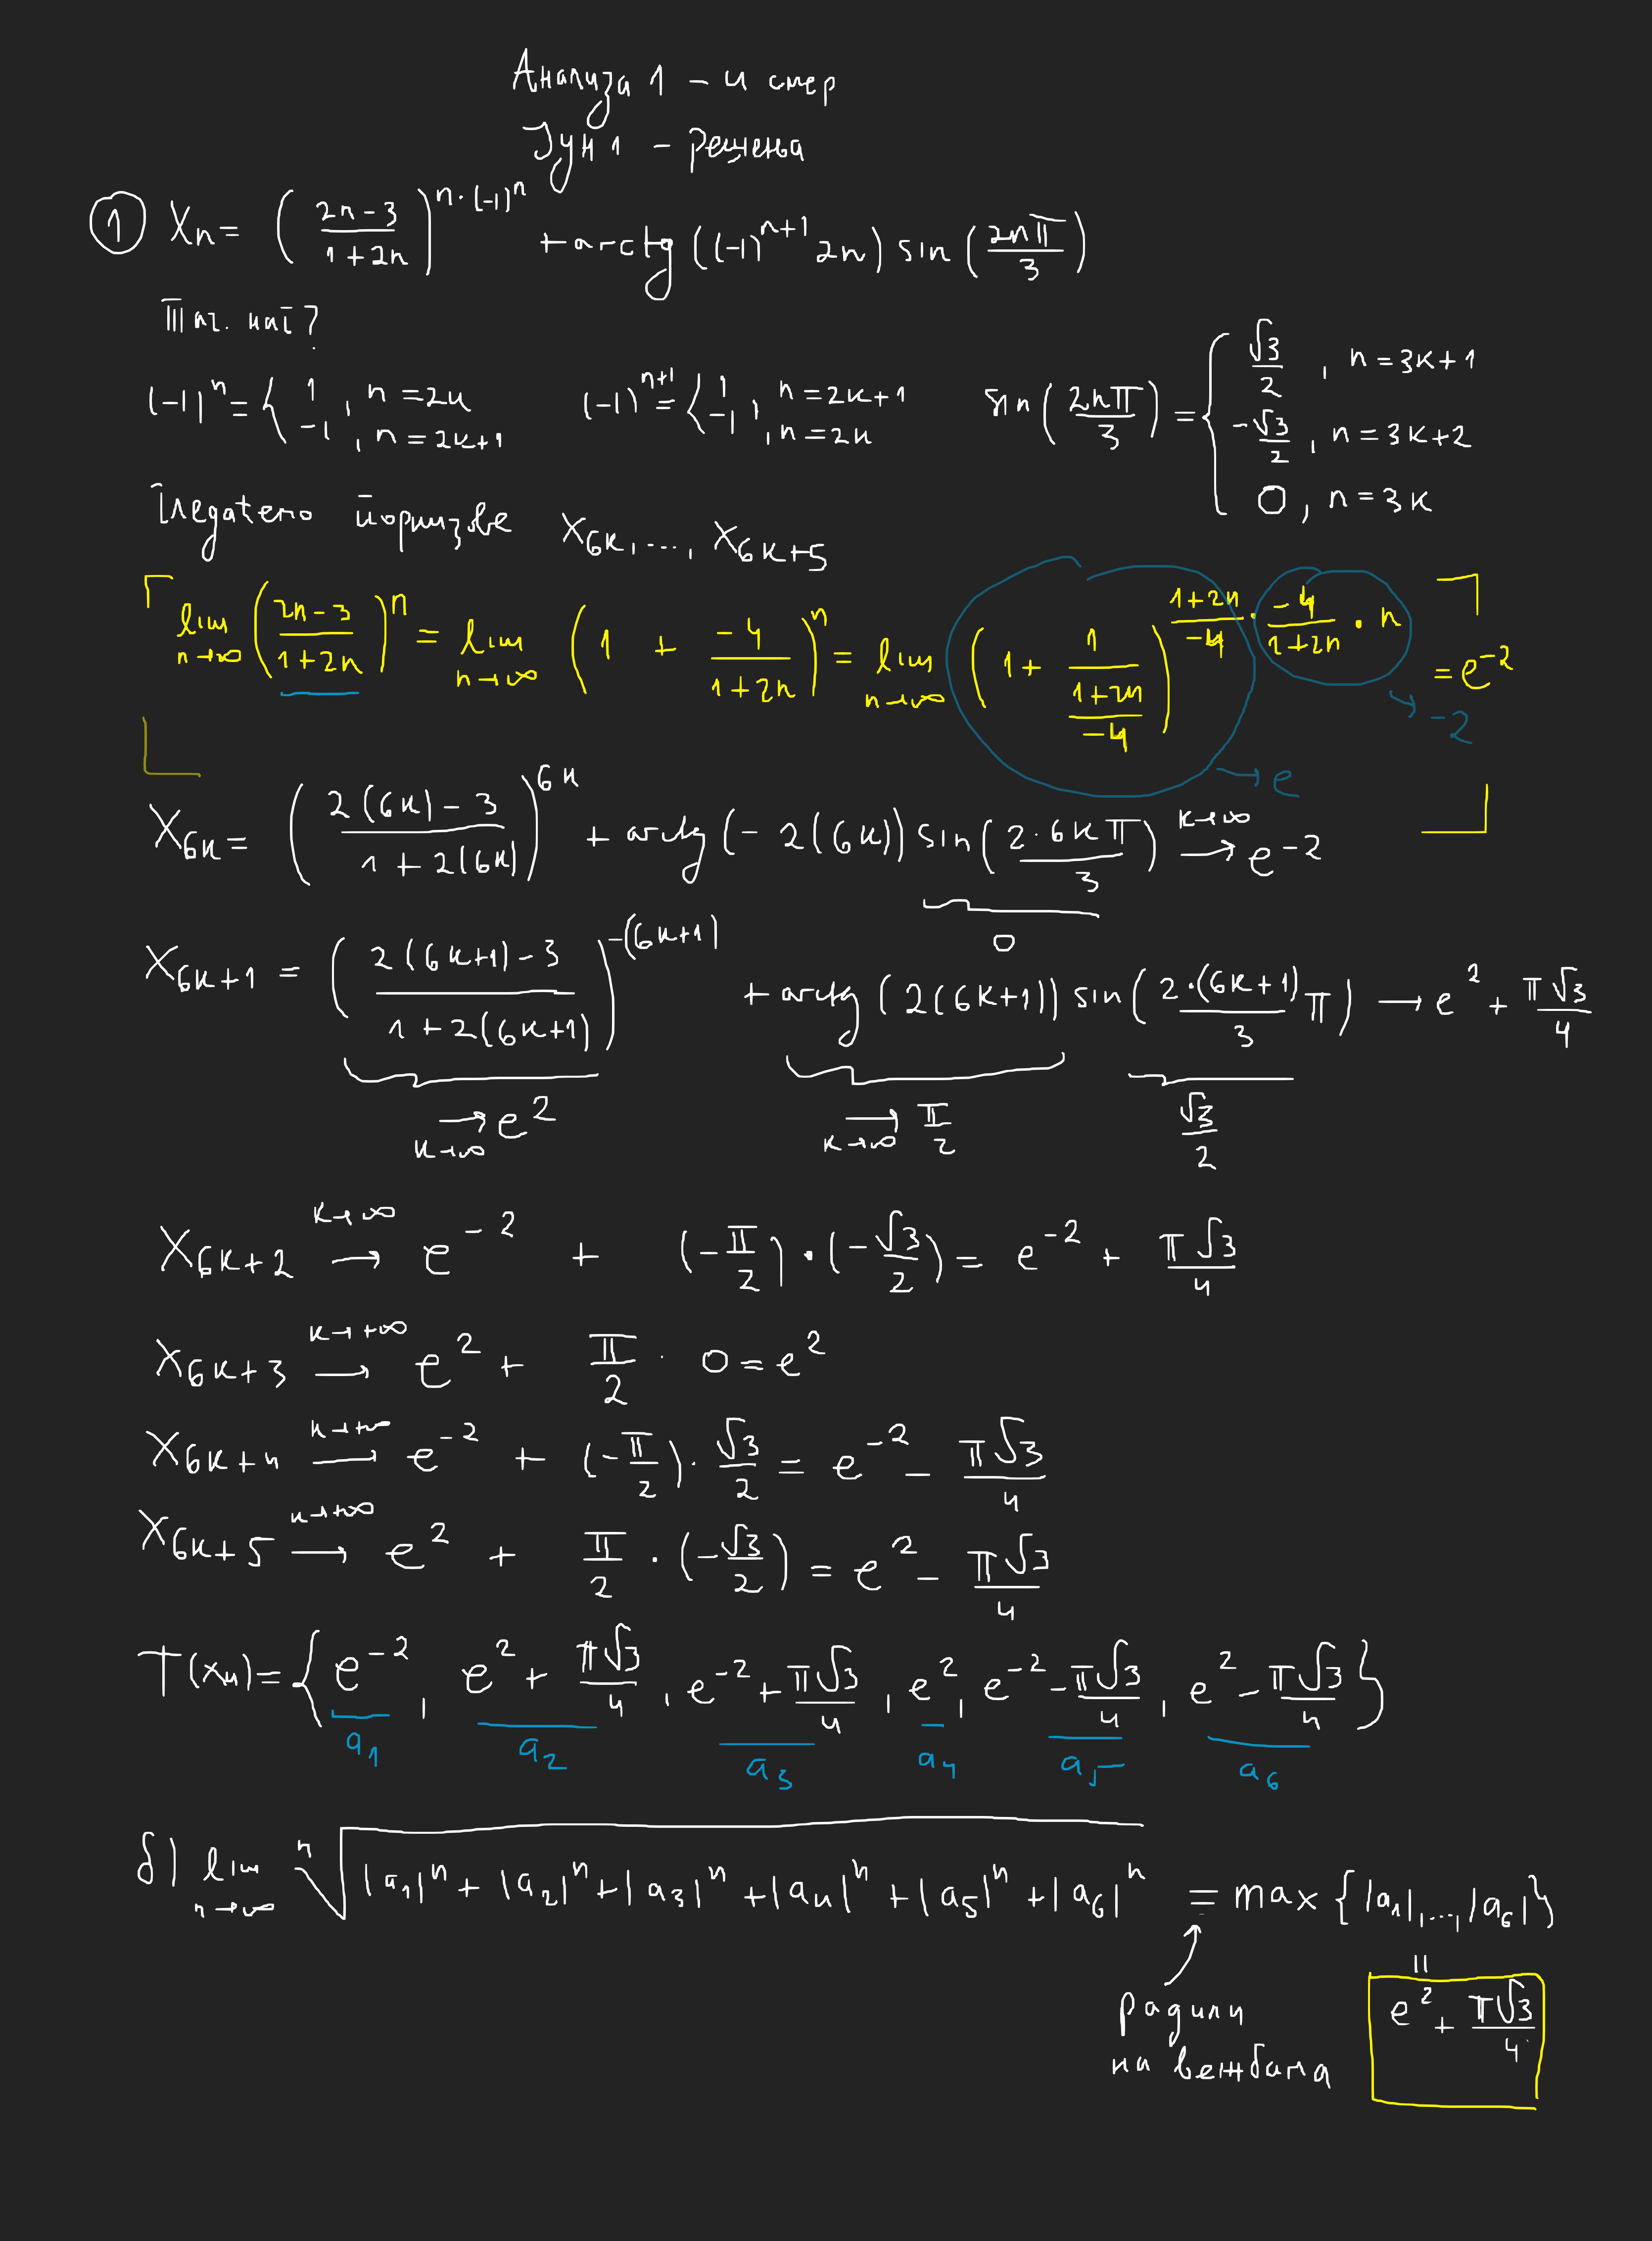 Анализа 1 - И смер
Јун 1 - Решења
① Xn = ( (2n-3)/(1+2n) )^(n·(-1)^n) + arctg((-1)^(n+1) 2n) sin(2nπ/3)
Тач. наг?
(-1)^n = { 1, n=2k ; -1, n=2k+1    (-1)^(n+1) = { 1, n=2k+1 ; -1, n=2k    sin(2nπ/3) = { √3/2, n=3k+1 ; -√3/2, n=3k+2 ; 0, n=3k
Гледаћемо поднизове X6k, ..., X6k+5
⌈ lim n→∞ ((2n-3)/(1+2n))^n = lim n→∞ (1 + (-4)/(1+2n))^n = lim n→∞ (1 + 1/((1+2n)/(-4)))^((1+2n)/(-4) · (-4)/(1+2n) · n) = e^(-2) ⌉
→ -2
→ e
X6k = ( (2(6k)-3)/(1+2(6k)) )^(6k) + arctg(-2(6k)) sin(2·6kπ/3) k→∞ → e^(-2)
0
X6k+1 = ( (2(6k+1)-3)/(1+2(6k+1)) )^(-(6k+1)) + arctg(2(6k+1)) sin(2·(6k+1)/3 π) → e^2 + π√3/4
→ k→∞ e^2    → k→∞ π/2    √3/2
X6k+2 k→∞ → e^(-2) + (-π/2)·(-√3/2) = e^(-2) + π√3/4
X6k+3 k→+∞ → e^2 + π/2 · 0 = e^2
X6k+4 k→+∞ → e^(-2) + (-π/2)·√3/2 = e^(-2) - π√3/4
X6k+5 k→+∞ → e^2 + π/2·(-√3/2) = e^2 - π√3/4
T(xn) = { e^(-2), e^2 + π√3/4, e^(-2) + π√3/4, e^2, e^(-2) - π√3/4, e^2 - π√3/4 }
a1 a2 a3 a4 a5 a6
б) lim n→∞ ⁿ√(|a1|^n + |a2|^n + |a3|^n + |a4|^n + |a5|^n + |a6|^n) = max{|a1|, ..., |a6|}
=
e^2 + π√3/4
радили
на вежбама